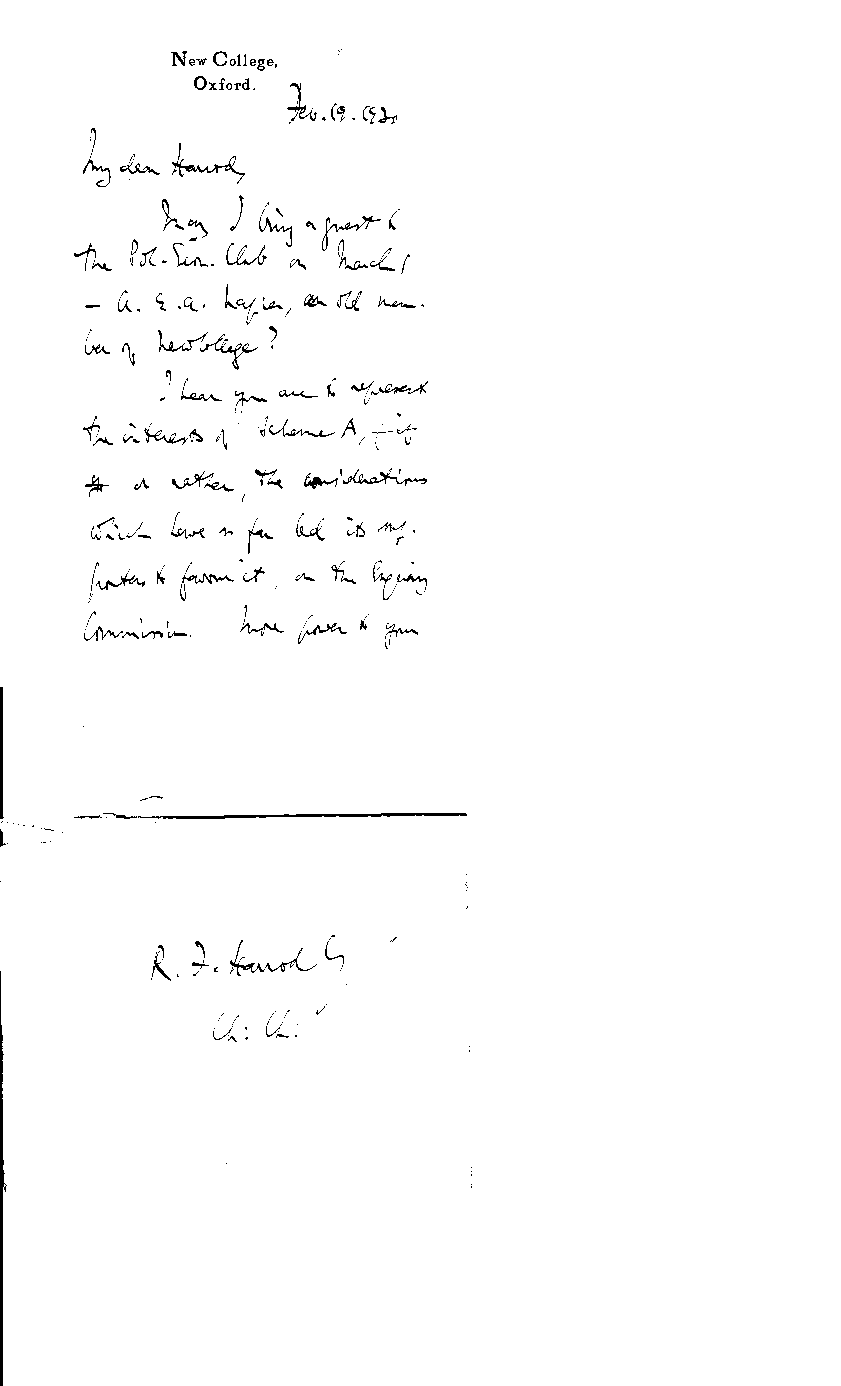 New College,
Oxford.
Feb. 19.
My dear Harrod,
May I bring a guest to
the Pol. Econ. Club on March 1
— A. E. A. Napier, an old mem-
ber of New College?
I hear you are to represent
the interests of Scheme A, – if
or rather, the considerations
which have so far led its sup-
porters to favour it, on the Enquiry
Commission. More power to you
R. F. Harrod Esq
Ch: Ch: